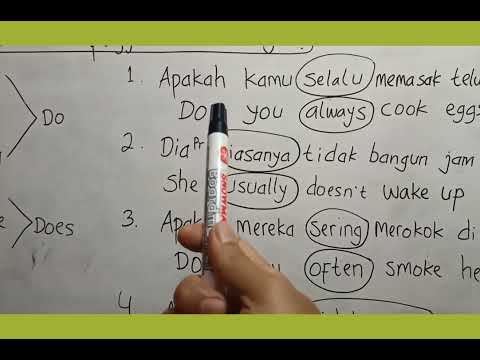 1. Apakah kamu selalu memasak telu
Do
Do you always cook eggs
2. Dia Pr iasanya tidak bangun jam
She usually doesn't wake up
3. Apak mereka sering merokok di
Does
Do often smoke he
4.
SNOWMAN